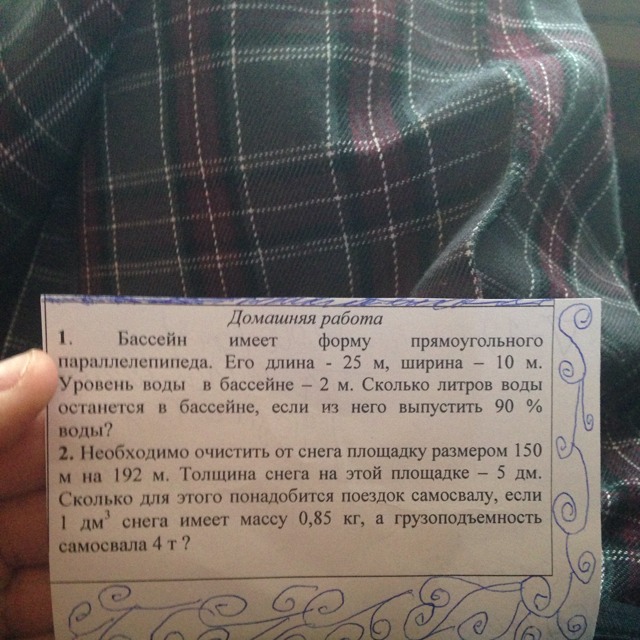 Домашняя работа
1. Бассейн имеет форму прямоугольного
параллелепипеда. Его длина - 25 м, ширина – 10 м.
Уровень воды в бассейне – 2 м. Сколько литров воды
останется в бассейне, если из него выпустить 90 %
воды?
2. Необходимо очистить от снега площадку размером 150
м на 192 м. Толщина снега на этой площадке – 5 дм.
Сколько для этого понадобится поездок самосвалу, если
1 дм³ снега имеет массу 0,85 кг, а грузоподъемность
самосвала 4 т ?